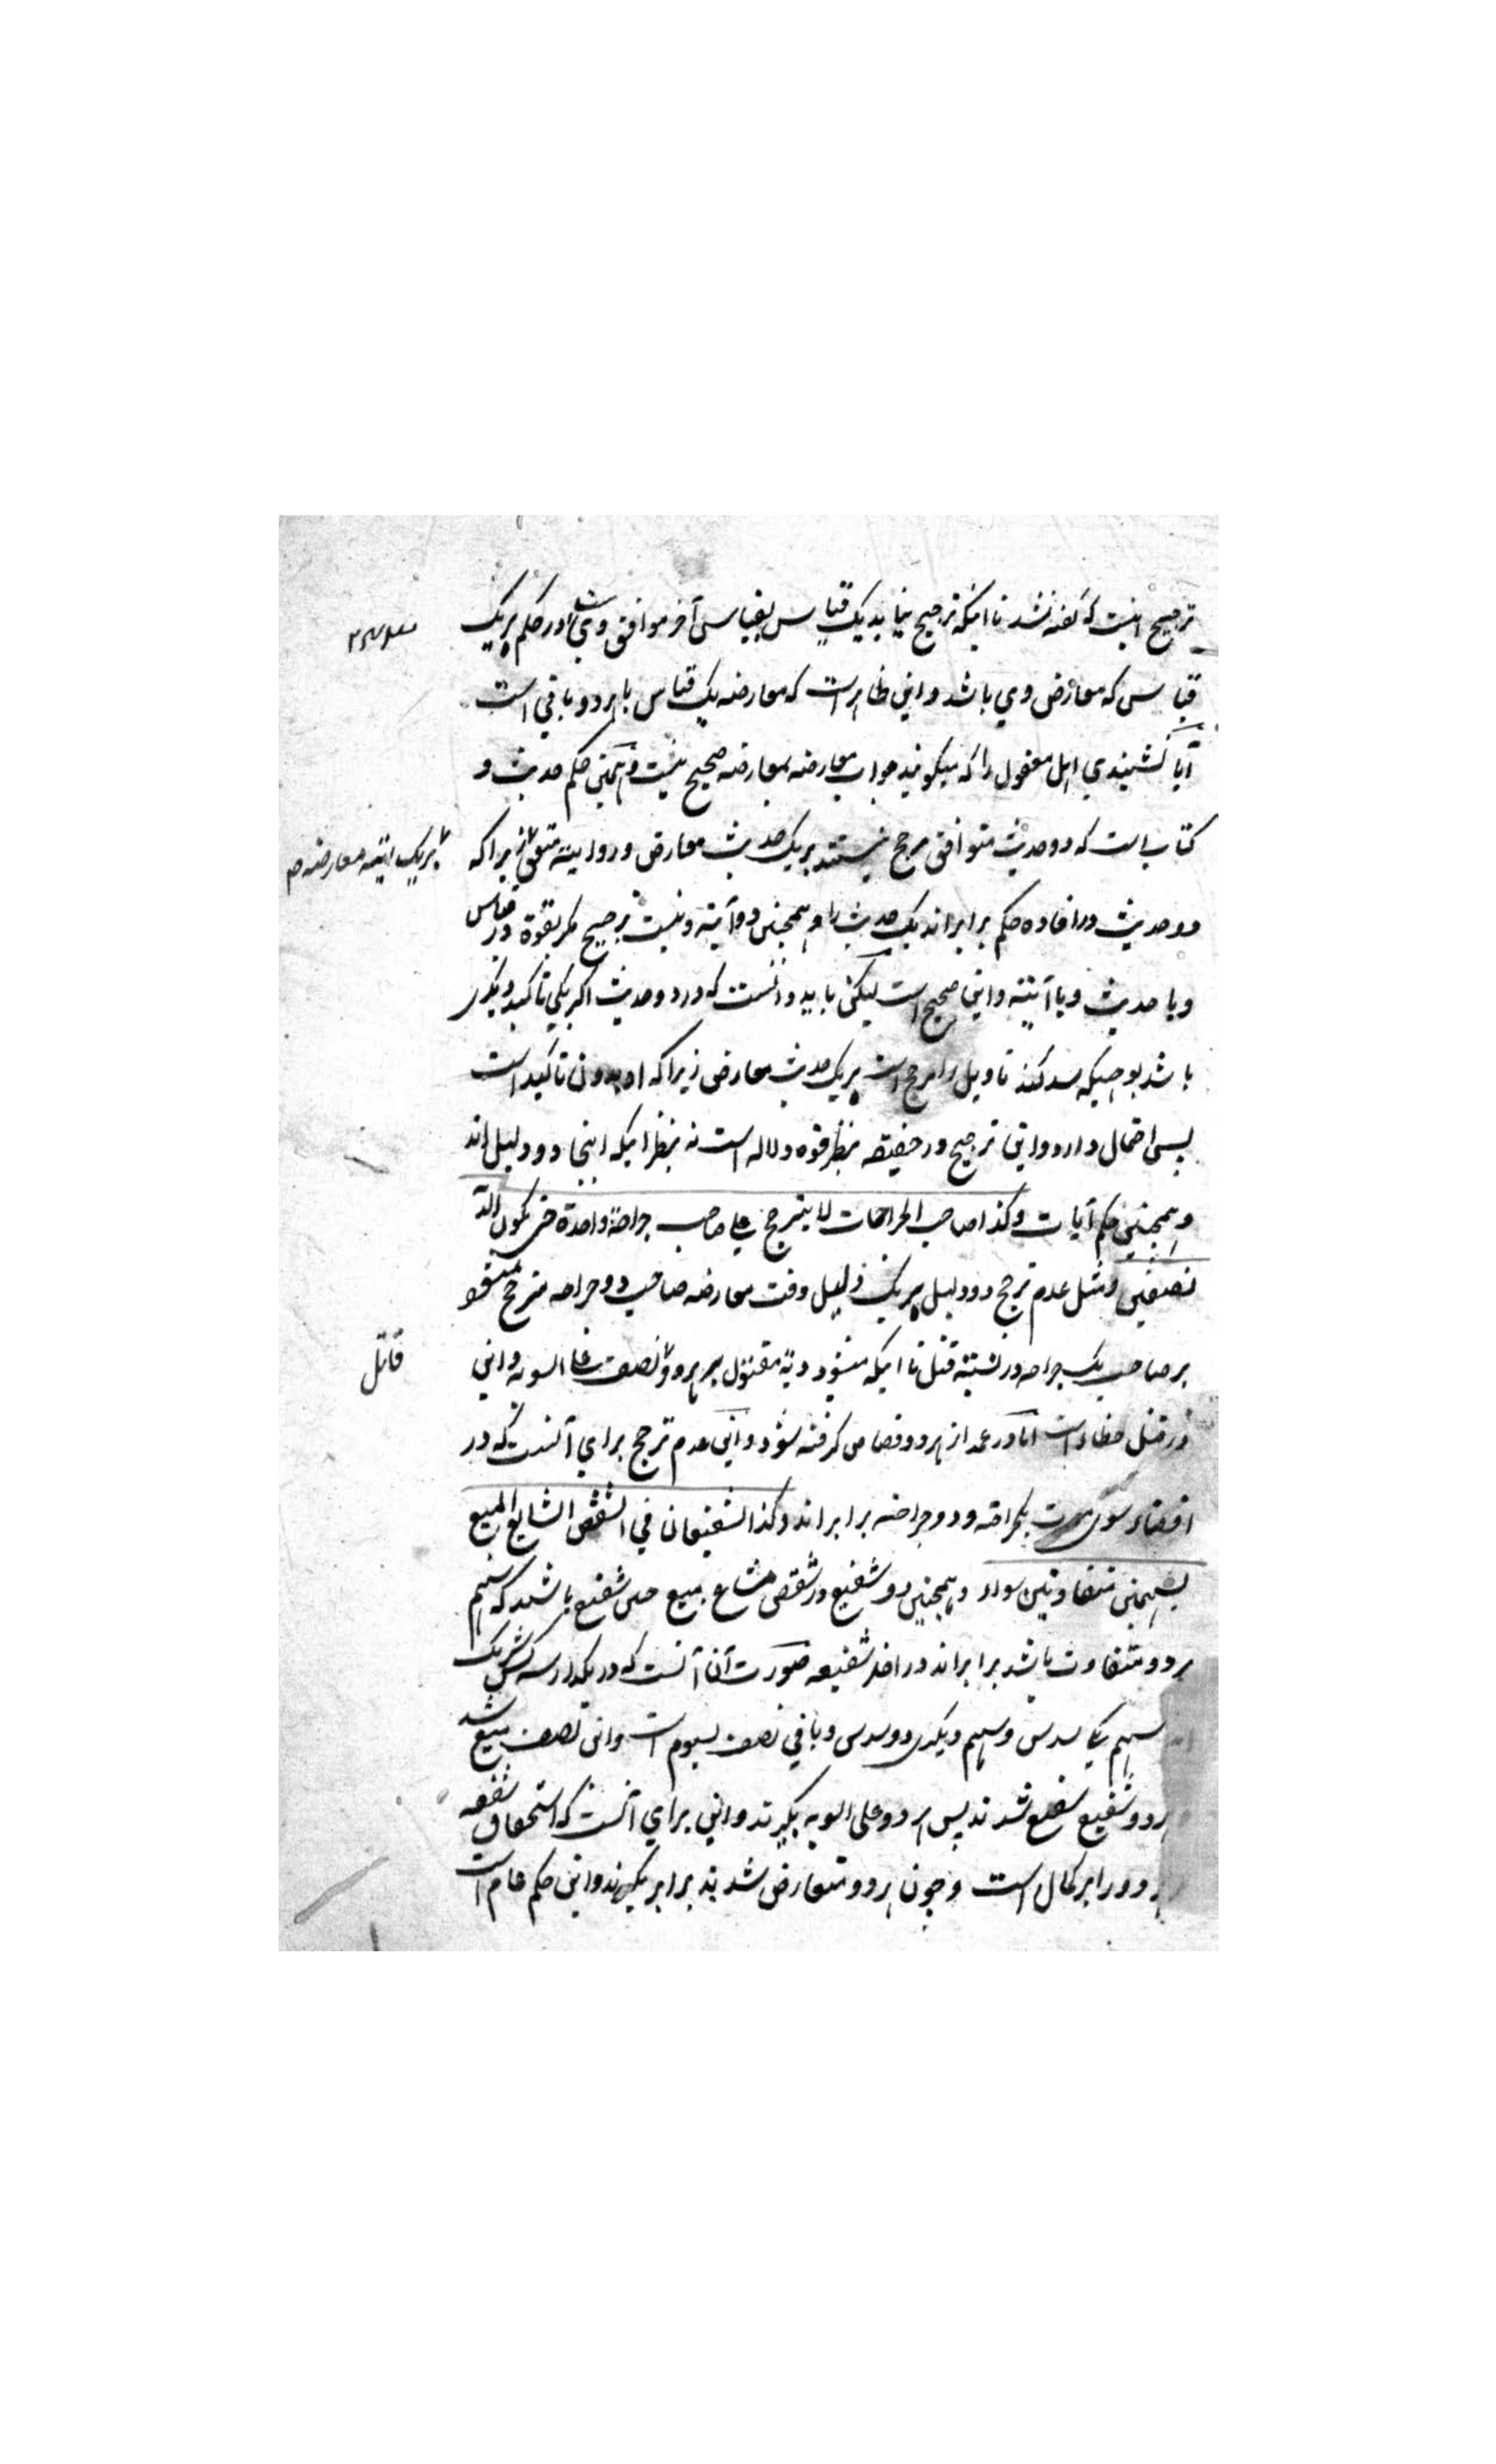 ترجیح اینست که گفته شد تا اینکه ترجیح نیابد یک قیاس بقیاسی آخر موافق وی در حکم بریک
قیاس که معارض وی باشد و این ظاهر است که معارضه یک قیاس با هر دو باقی است
آیا نشنیدی اهل معقول را که میگویند جواب معارضه بمعارضه صحیح نیست و همچنین حکم حدیث و
کتاب است که دو حدیث متوافق مرجح نیستند بریک حدیث معارض و دو ایته متفق زیراکه
بریک ایته معارضه
دو حدیث در افاده حکم برابراند یک حدیث را و همچنین دو آیته و نیست ترجیح مگر بقوة در قیاس
و یا حدیث و یا آیته و این صحیح است لیکن باید دانست که در دو حدیث اگر یکی تاکید دیگری
باشد بوجهیکه سد کند تاویل را مرجح است بریک حدیث معارض زیراکه او بدون تاکید است
پس احتمال دارد و این ترجیح در حقیقه بنظر قوه دلاله است نه بنظر اینکه اینجا دو دلیل اند
و همچنین حکم آیات وکذا صاحب الجراحات لا یترجح علی صاحب جراحة واحدة حتی یکون الدیة
نصفین و مثل عدم ترجح دو دلیل بریک دلیل وقت معارضه صاحب دو جراحه مترجح نمیشود
بر صاحب یک جراحه در نسبته قتل تا اینکه میشود دیة مقتول بر هر دو نصف علی السویه و این
قاتل
در قتل خطا است اما در عمد از هر دو قصاص گرفته شود و این عدم ترجح برای آنست که در
افضاء بسوی موت یکجراحه و دو جراحه برابر اند وکذا الشفیعان فی الشقص الشایع المبیع
بسهمین متفاوتین سواء و همچنین دو شفیع در شقص مشاع مبیع باشند که سهم
هر دو متفاوت باشد برابراند در اخذ شفعه صورت آن آنست که در یکدار سه کس شریک
سهم یکی سدس و سهم دیگری دو سدس و باقی نصف سیوم است و این نصف مبیع شد
هر دو شفیع شدند پس هر دو علی السویه بگیرند و این برای آنست که استحقاق شفعه
هر دو را بر کمال است و چون هر دو متعارض شدند برابر بگیرند و این حکم عام است